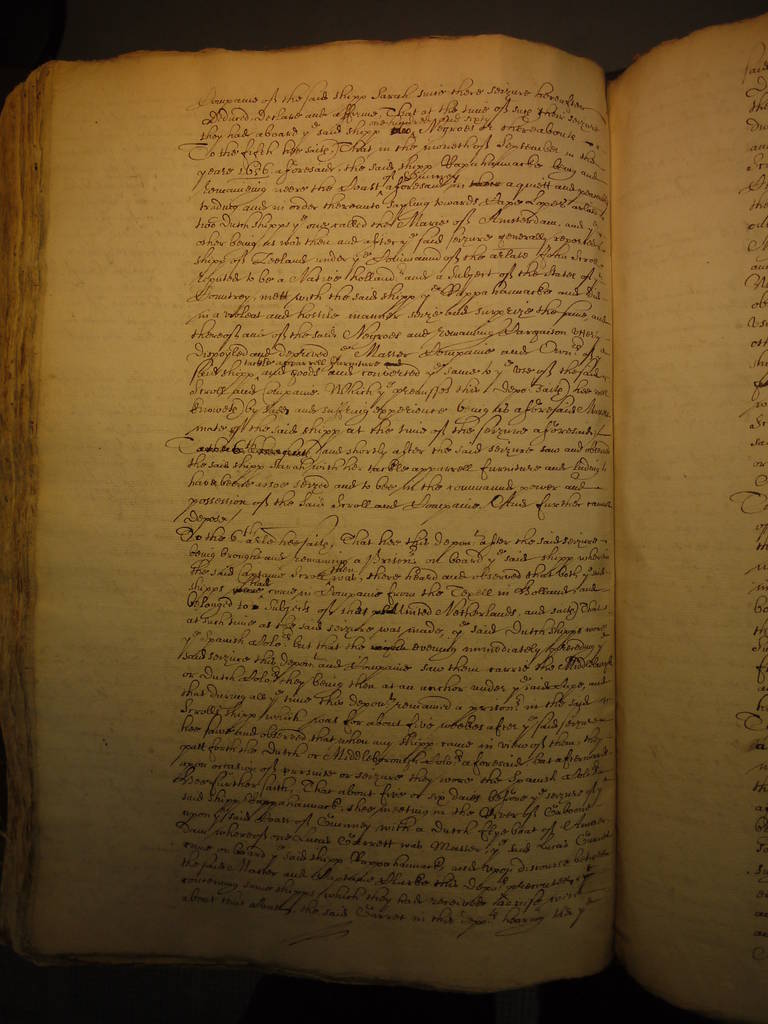 Companie of the said shipp Sarah since there seizure hereafter
deduced, declare and affirme, That at the time of such their seizure
they had aboard ye said shipp one hundred and sixty Negroes or thereabouts
To the fifth hee saith, That in the moneth of September in the
yeare 1656 aforesaid, the said shipp Rapahannacke being and
remaineing neere the Coast of Guinney aforesaid in a quiett and peaceable
trading and in order thereunto sayling towards Cape Lopez arlate
two Dutch shipps ye one called the Marie of Amsterdam, and ye
other being as was then and after ye said seizure generally reported a
shipp of Zeeland under ye Command of the arlate John Scroll
reputed to be a Native holland and a subject of the States of
Countrey, mett with the said shipp ye Rappahannacke and did
in a violent and hostile manner seize and surprize the same, and
thereof and of the said Negroes and remaining Cargaison utterly
dispoyled and deprived Master Companie and Owners of ye
said shipp tackle apparrell furniture and goods and converted ye same to ye use of the said
Scroll and Companie. Which ye premisses this depot saith hee well
knoweth by sad and suffring experience being as aforesaid Masters
mate of the said shipp at the time of the seizure aforesaid,
And shortly after the said seizure saw and observed
the said shipp Sarah with her tackle apparrell furniture and lading to
have beene alsoe seized and to bee in the command power and
possession of the said Scroll and Companie. And further cannot
depose
To the 6th arle hee saith, That hee this depont after the said seizure
being brought and remaining a Prisoner on board ye said shipp wherein
the said Captaine Scroll then was, there heard and observed that both ye said
shipps had come in Companie from the Texell in Holland and
belonged to Subjects of the United Netherlands, and saith That
at such time as the said seizure was made, ye said Dutch shipps wore
ye Spanish Colors but that the evening immediately succeeding ye
said seizure this depont and Companie saw them carrie the Middleborough
or Dutch Colors they being then at an anchor under ye said Cape, and
that during all ye time this depont remained a prisoner in the said
Scrolls shipp which was for about five weekes after ye said seizure
hee saw and observed that when any shipp came in view of them, they
putt forth the Dutch or Middleborough Colors aforesaid, but afterwards
upon occasion of pursuite or seizure they wore the Spanish Colors
Hee further saith, That about five or six dayes before ye seizure of ye
said shipp Rappahannack, shee meeting in the River of Gaboone
upon ye said Coast of Guinney with a Dutch Flye boat of Amster
Dam whereof one Lucas Garrett was Master, ye said Lucas Garrett
came on board ye said shipp Rappahannack, and upon discourse between
the said Master and Captaine Clarke this depot present
concerning some shipps which they had received
about that Coast, the said Garret in this depots hearing told ye